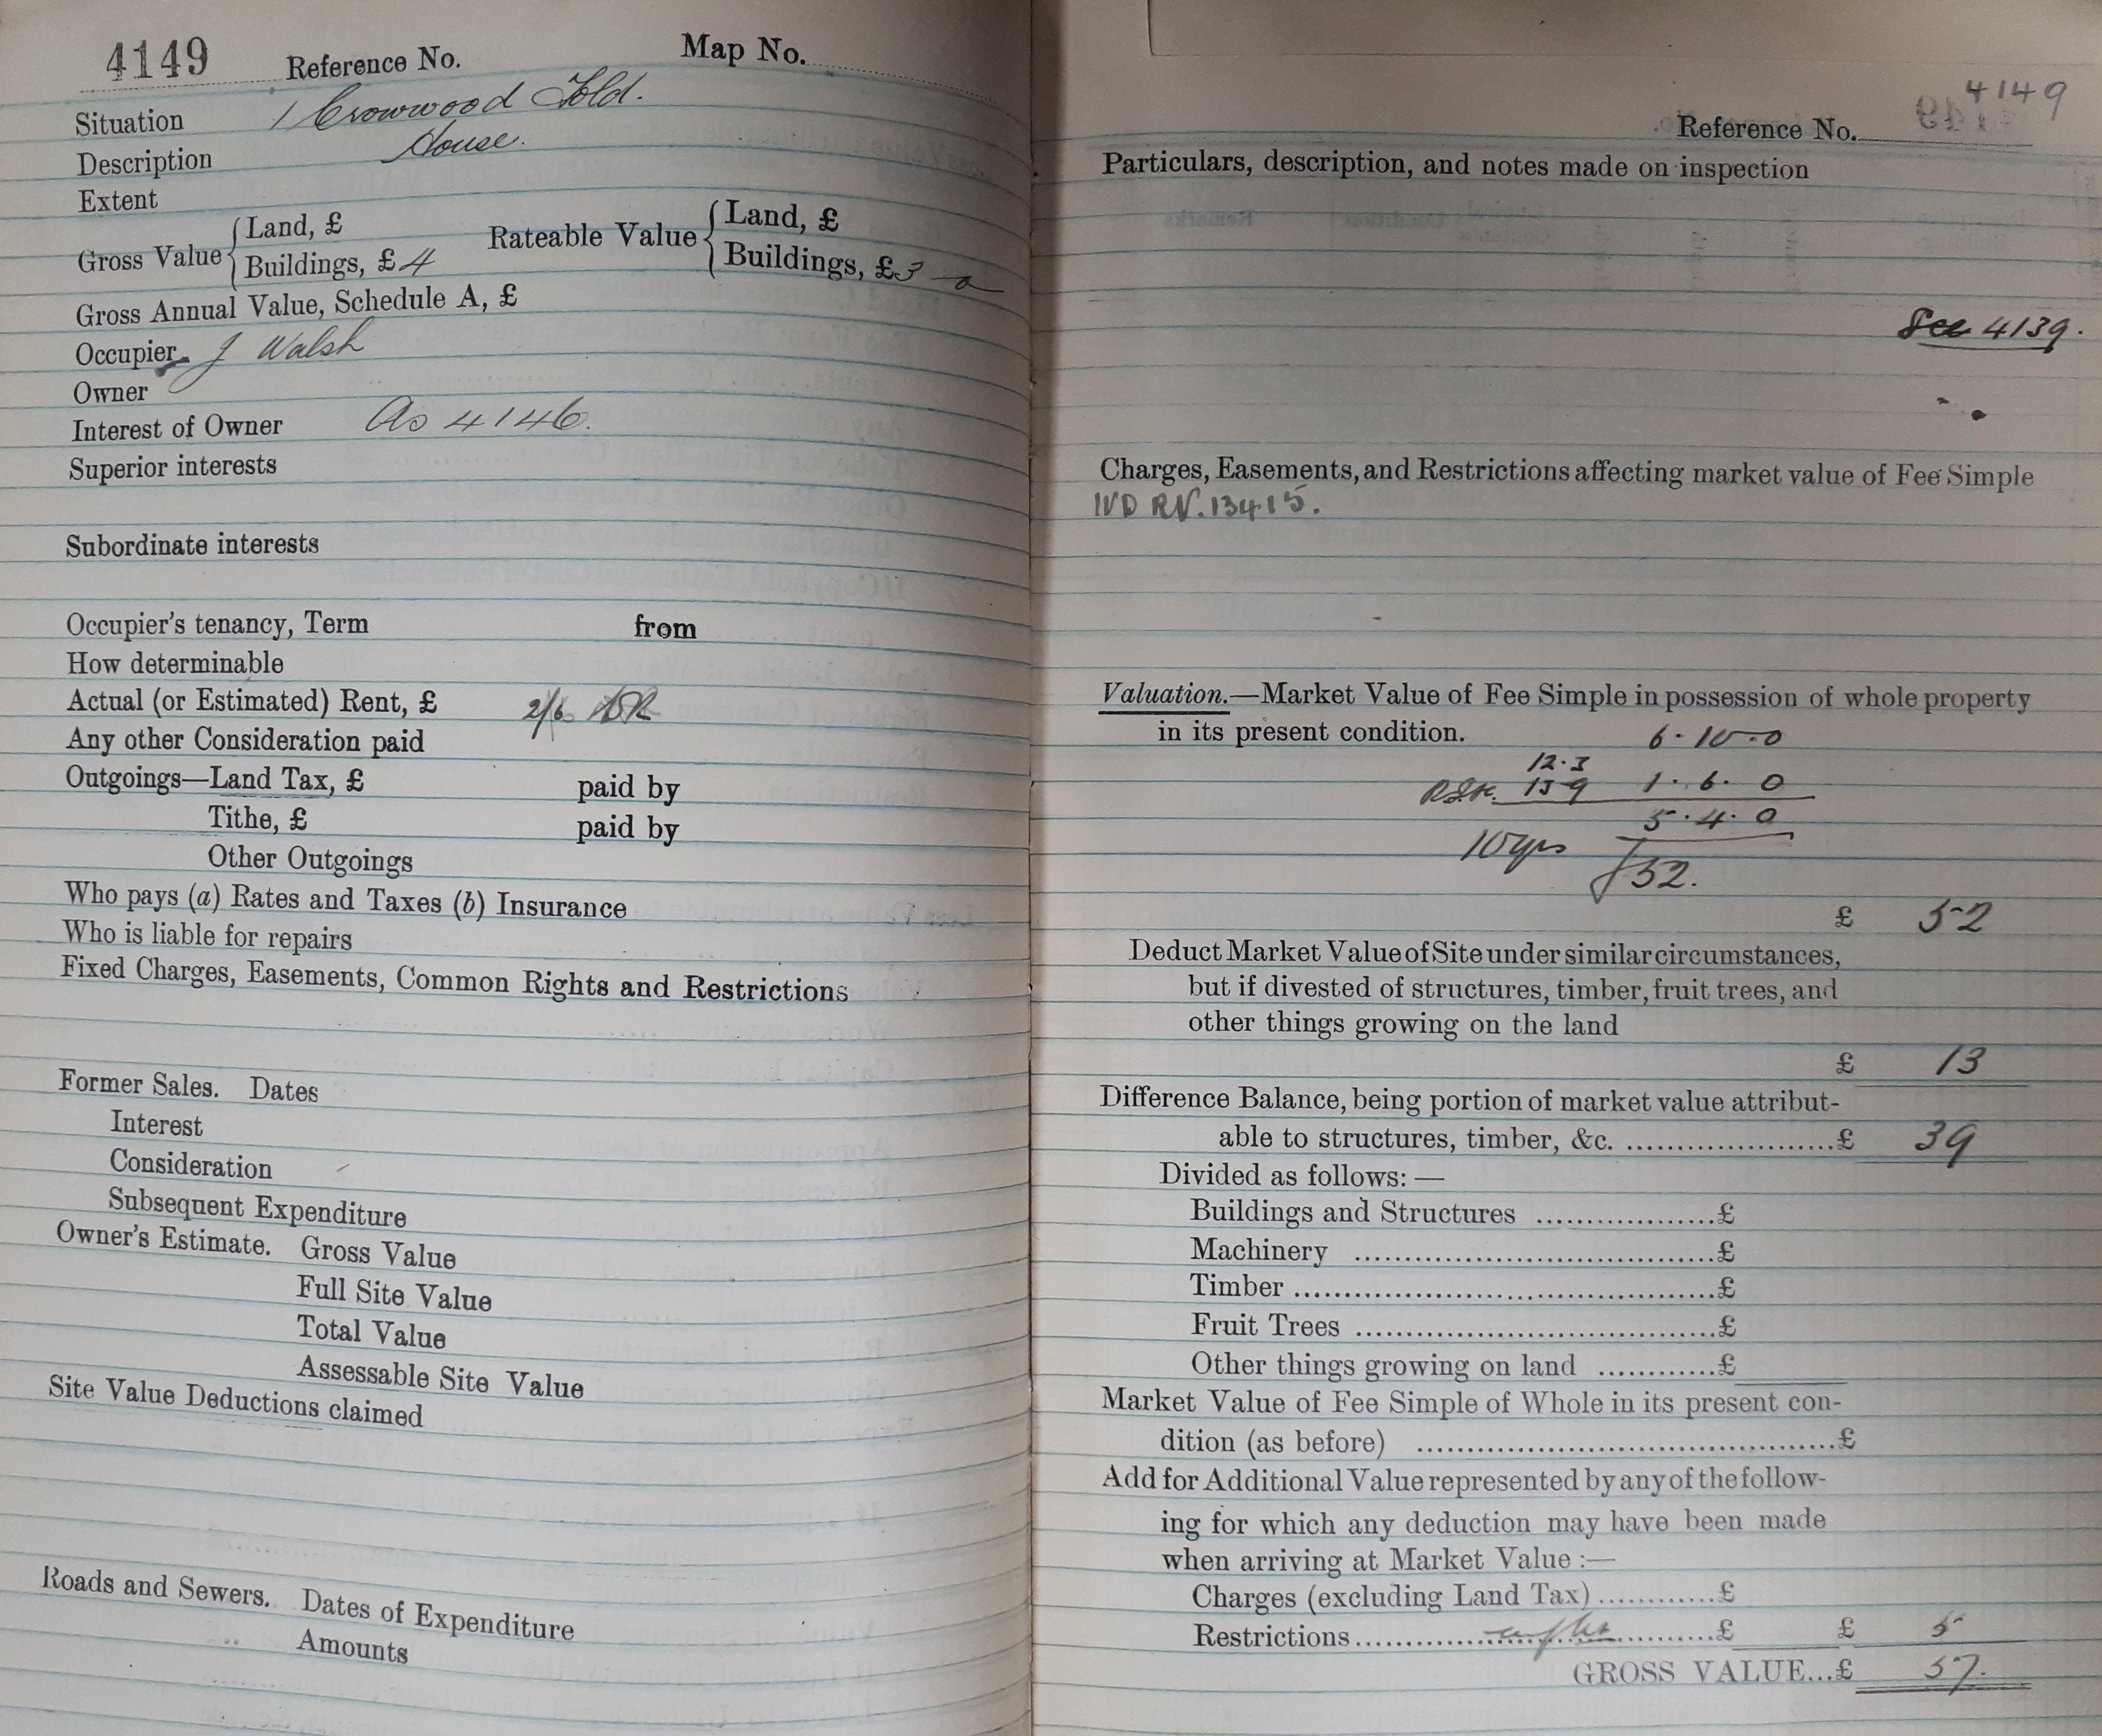 4149 Reference No. Map No.
Situation 1 Crowwood Fold.
Description House.
Extent
Gross Value { Land, £
Buildings, £ 4
Rateable Value { Land, £
Buildings, £ 3
Gross Annual Value, Schedule A, £
Occupier J Walsh
Owner
Interest of Owner As 4146.
Superior interests
Subordinate interests
Occupier's tenancy, Term from
How determinable
Actual (or Estimated) Rent, £ 2/6
Any other Consideration paid
Outgoings—Land Tax, £ paid by
Tithe, £ paid by
Other Outgoings
Who pays (a) Rates and Taxes (b) Insurance
Who is liable for repairs
Fixed Charges, Easements, Common Rights and Restrictions
Former Sales. Dates
Interest
Consideration
Subsequent Expenditure
Owner's Estimate. Gross Value
Full Site Value
Total Value
Assessable Site Value
Site Value Deductions claimed
Roads and Sewers. Dates of Expenditure
Amounts
4149
Reference No.
Particulars, description, and notes made on inspection
See 4139.
Charges, Easements, and Restrictions affecting market value of Fee Simple
IVD RV. 13415.
Valuation.—Market Value of Fee Simple in possession of whole property
in its present condition. 6.10.0
12.3
13 9 1.6.0
5.4.0
10 yrs £52.
£ 52
Deduct Market Value of Site under similar circumstances,
but if divested of structures, timber, fruit trees, and
other things growing on the land
£ 13
Difference Balance, being portion of market value attribut-
able to structures, timber, &c. ....................£ 39
Divided as follows: —
Buildings and Structures ..................£
Machinery ....................................£
Timber ..........................................£
Fruit Trees ....................................£
Other things growing on land ............£
Market Value of Fee Simple of Whole in its present con-
dition (as before) ..........................................£
Add for Additional Value represented by any of the follow-
ing for which any deduction may have been made
when arriving at Market Value :—
Charges (excluding Land Tax) ............£
Restrictions....................................£ £ 5
GROSS VALUE...£ 57.